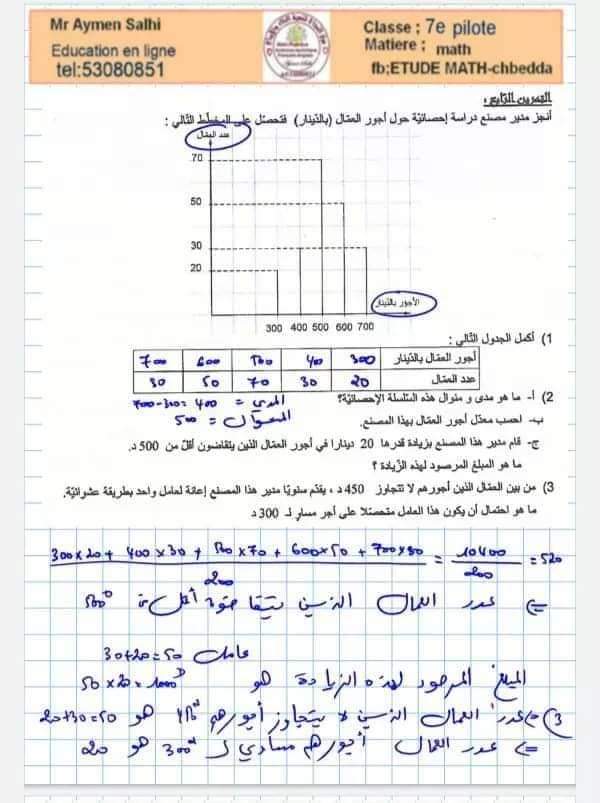 Mr Aymen Salhi
Education en ligne
tel:53080851
Classe ; 7e pilote
Matiere ; math
fb;ETUDE MATH-chbedda
التمرين الرابع :
أنجز مدير مصنع دراسة إحصائيّة حول أجور العمّال (بالدّينار) فتحصّل على المخطّط التّالي :
عدد العمّال
70
50
30
20
الأجور بالدّينار
300 400 500 600 700
1) أكمل الجدول التّالي :
أجور العمّال بالدّينار 300 400 500 600 700
عدد العمّال 20 30 70 50 30
2) أ- ما هو مدى و منوال هذه السّلسلة الإحصائيّة؟ المدى = 400 = 300-700
ب- احسب معدّل أجور العمّال بهذا المصنع. المنوال = 500
ج- قام مدير هذا المصنع بزيادة قدرها 20 دينارا في أجور العمّال الذين يتقاضون أقلّ من 500 د.
ما هو المبلغ المرصود لهذه الزّيادة ؟
3) من بين العمّال الذين أجورهم لا تتجاوز 450 د ، يقدّم سنويّا مدير هذا المصنع إعانة لعامل واحد بطريقة عشوائيّة.
ما هو احتمال أن يكون هذا العامل متحصّلا على أجر مساوٍ لـ 300 د
300×20+ 400×30 + 500×70 + 600×50 + 700×30 = 10400 = 520
200 200
=) عدد العمال الذين يتقاضون أقل من 500د
30+20=50 عامل
المبلغ المرصود لهذه الزيادة هو 50×20=1000D
3) =) عدد العمال الذين لا يتجاوز أجورهم 450د هو 20+30=50
=) عدد العمال أجورهم مساوي لـ 300د هو 20